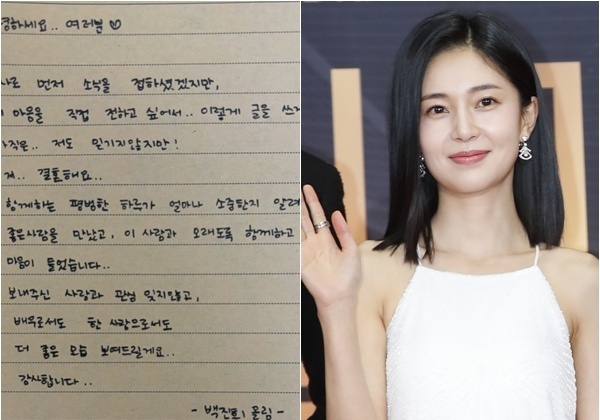 안녕하세요.. 여러분♡
기사로 먼저 소식을 접하셨겠지만,
마음을 직접 전하고 싶어서.. 이렇게 글을 쓰게
아직은.. 저도 믿기지않지만!
저.. 결혼해요..
함께하는 평범한 하루가 얼마나 소중한지 알려
좋은사람을 만났고, 이 사람과 오래도록 함께하고
마음이 들었습니다..
보내주신 사랑과 관심 잊지않고,
배우로서도 한 사람으로서도
더 좋은 모습 보여드릴게요..
감사합니다..
- 백진희 올림 -